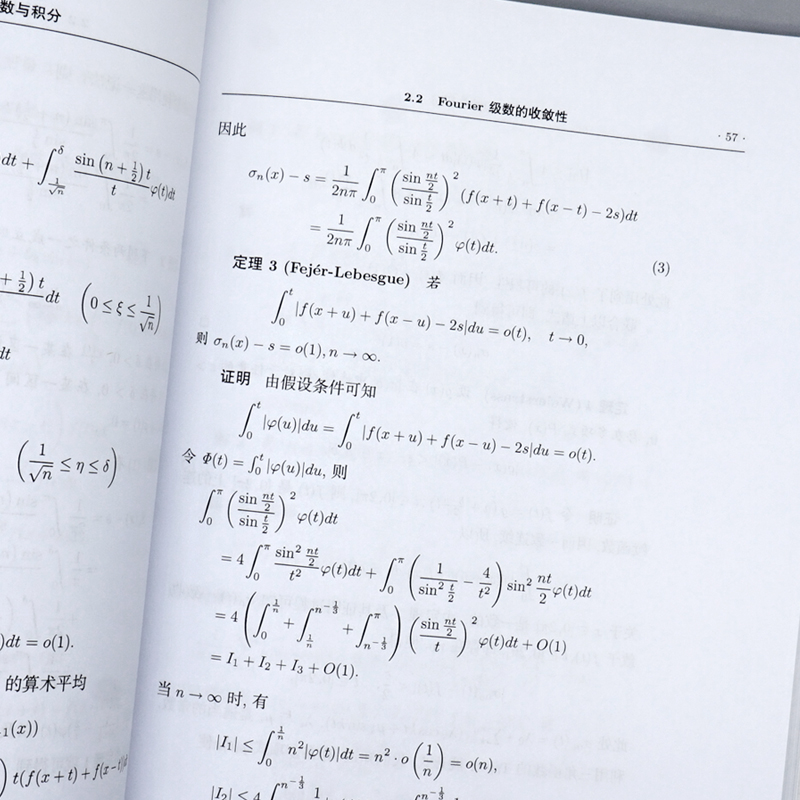 数与积分
dt + ∫_{1/√n}^{δ} \frac{sin (n + 1/2) t}{t} φ(t)dt
\frac{+ 1/2) t}{} dt (0 ≤ ξ ≤ 1/√n)
dt
(1/√n ≤ η ≤ δ)
)dt = o(1).
的算术平均
₋₁(x))
) t(f(x + t) + f(x − t)
2.2 Fourier 级数的收敛性 · 57 ·
因此
σ_n(x) − s = \frac{1}{2nπ} ∫_0^π (\frac{sin \frac{nt}{2}}{sin \frac{t}{2}})^2 (f(x + t) + f(x − t) − 2s)dt
= \frac{1}{2nπ} ∫_0^π (\frac{sin \frac{nt}{2}}{sin \frac{t}{2}})^2 φ(t)dt. (3)
定理 3 (Fejér-Lebesgue) 若
∫_0^t |f(x + u) + f(x − u) − 2s|du = o(t), t → 0,
则 σ_n(x) − s = o(1), n → ∞.
证明 由假设条件可知
∫_0^t |φ(u)|du = ∫_0^t |f(x + u) + f(x − u) − 2s|du = o(t).
令 Φ(t) = ∫_0^t |φ(u)|du, 则
∫_0^π (\frac{sin \frac{nt}{2}}{sin \frac{t}{2}})^2 φ(t)dt
= 4 ∫_0^π \frac{sin^2 \frac{nt}{2}}{t^2} φ(t)dt + ∫_0^π (\frac{1}{sin^2 \frac{t}{2}} − \frac{4}{t^2}) sin^2 \frac{nt}{2} φ(t)dt
= 4 (∫_0^{\frac{1}{n}} + ∫_{\frac{1}{n}}^{n^{-\frac{1}{3}}} + ∫_{n^{-\frac{1}{3}}}^π) (\frac{sin \frac{nt}{2}}{t})^2 φ(t)dt + O(1)
= I_1 + I_2 + I_3 + O(1).
当 n → ∞ 时, 有
|I_1| ≤ ∫_0^{\frac{1}{n}} n^2|φ(t)|dt = n^2 · o(\frac{1}{n}) = o(n),
|I_2| ≤ 4 ∫^{n^{-\frac{1}{3}}} 1